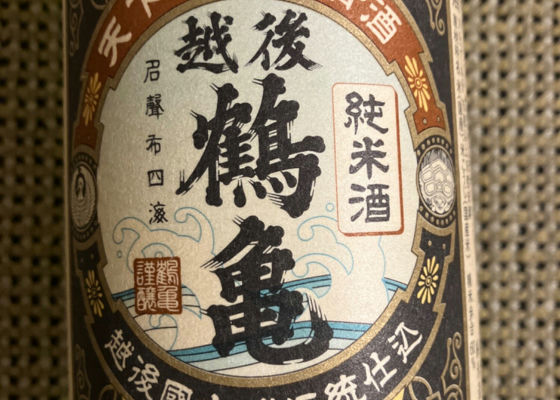 天
酒
越後
鶴亀
純米酒
名聲布四海
鶴亀
謹醸
越後國
統仕込